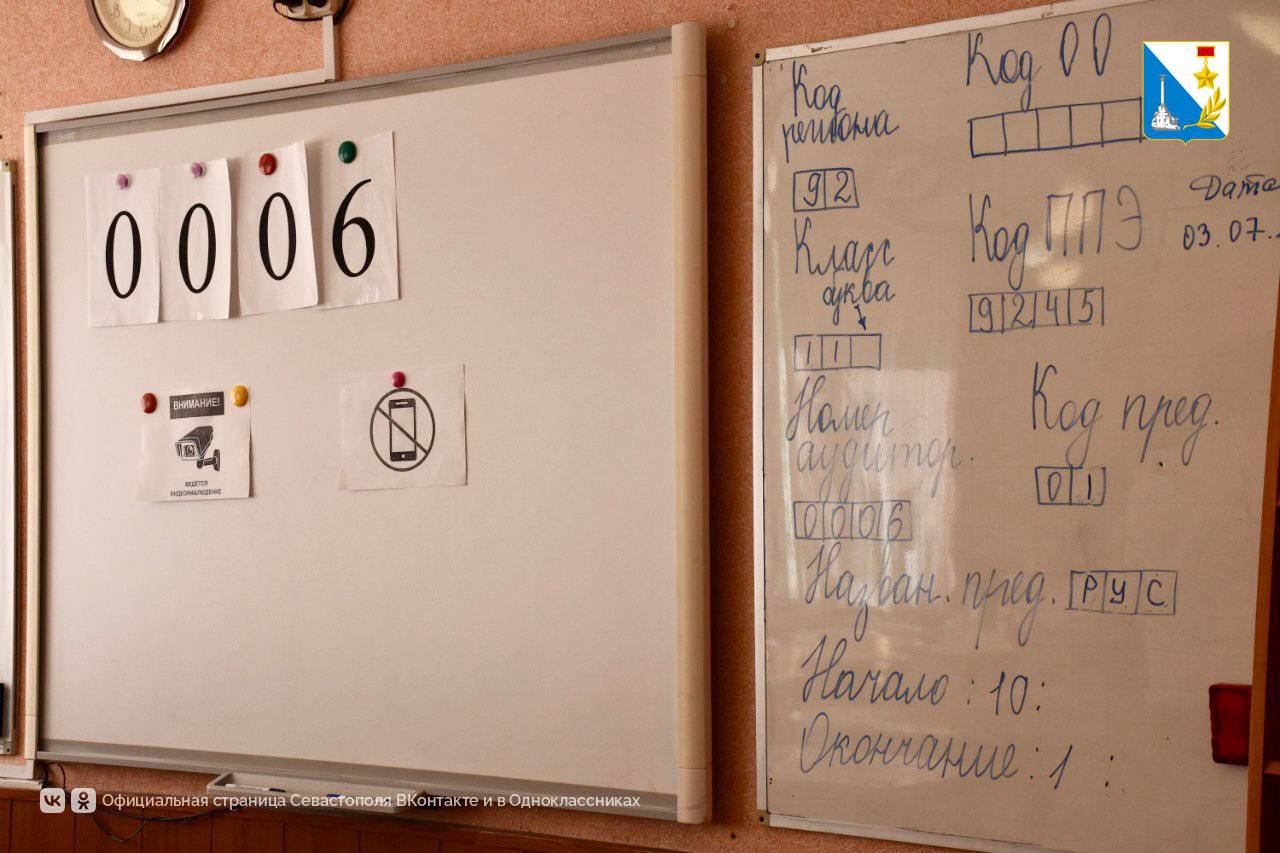 SMART
0 0 0 6
ВНИМАНИЕ!
ВЕДЁТСЯ
ВИДЕОНАБЛЮДЕНИЕ
Код
региона
92
Класс
буква
11
Номер
аудитор.
0006
Код ОО
Дата
03.07.
Код ППЭ
9245
Код пред.
01
Назван. пред. РУС
Начало : 10 :
Окончание : 1 :
Официальная страница Севастополя ВКонтакте и в Одноклассниках